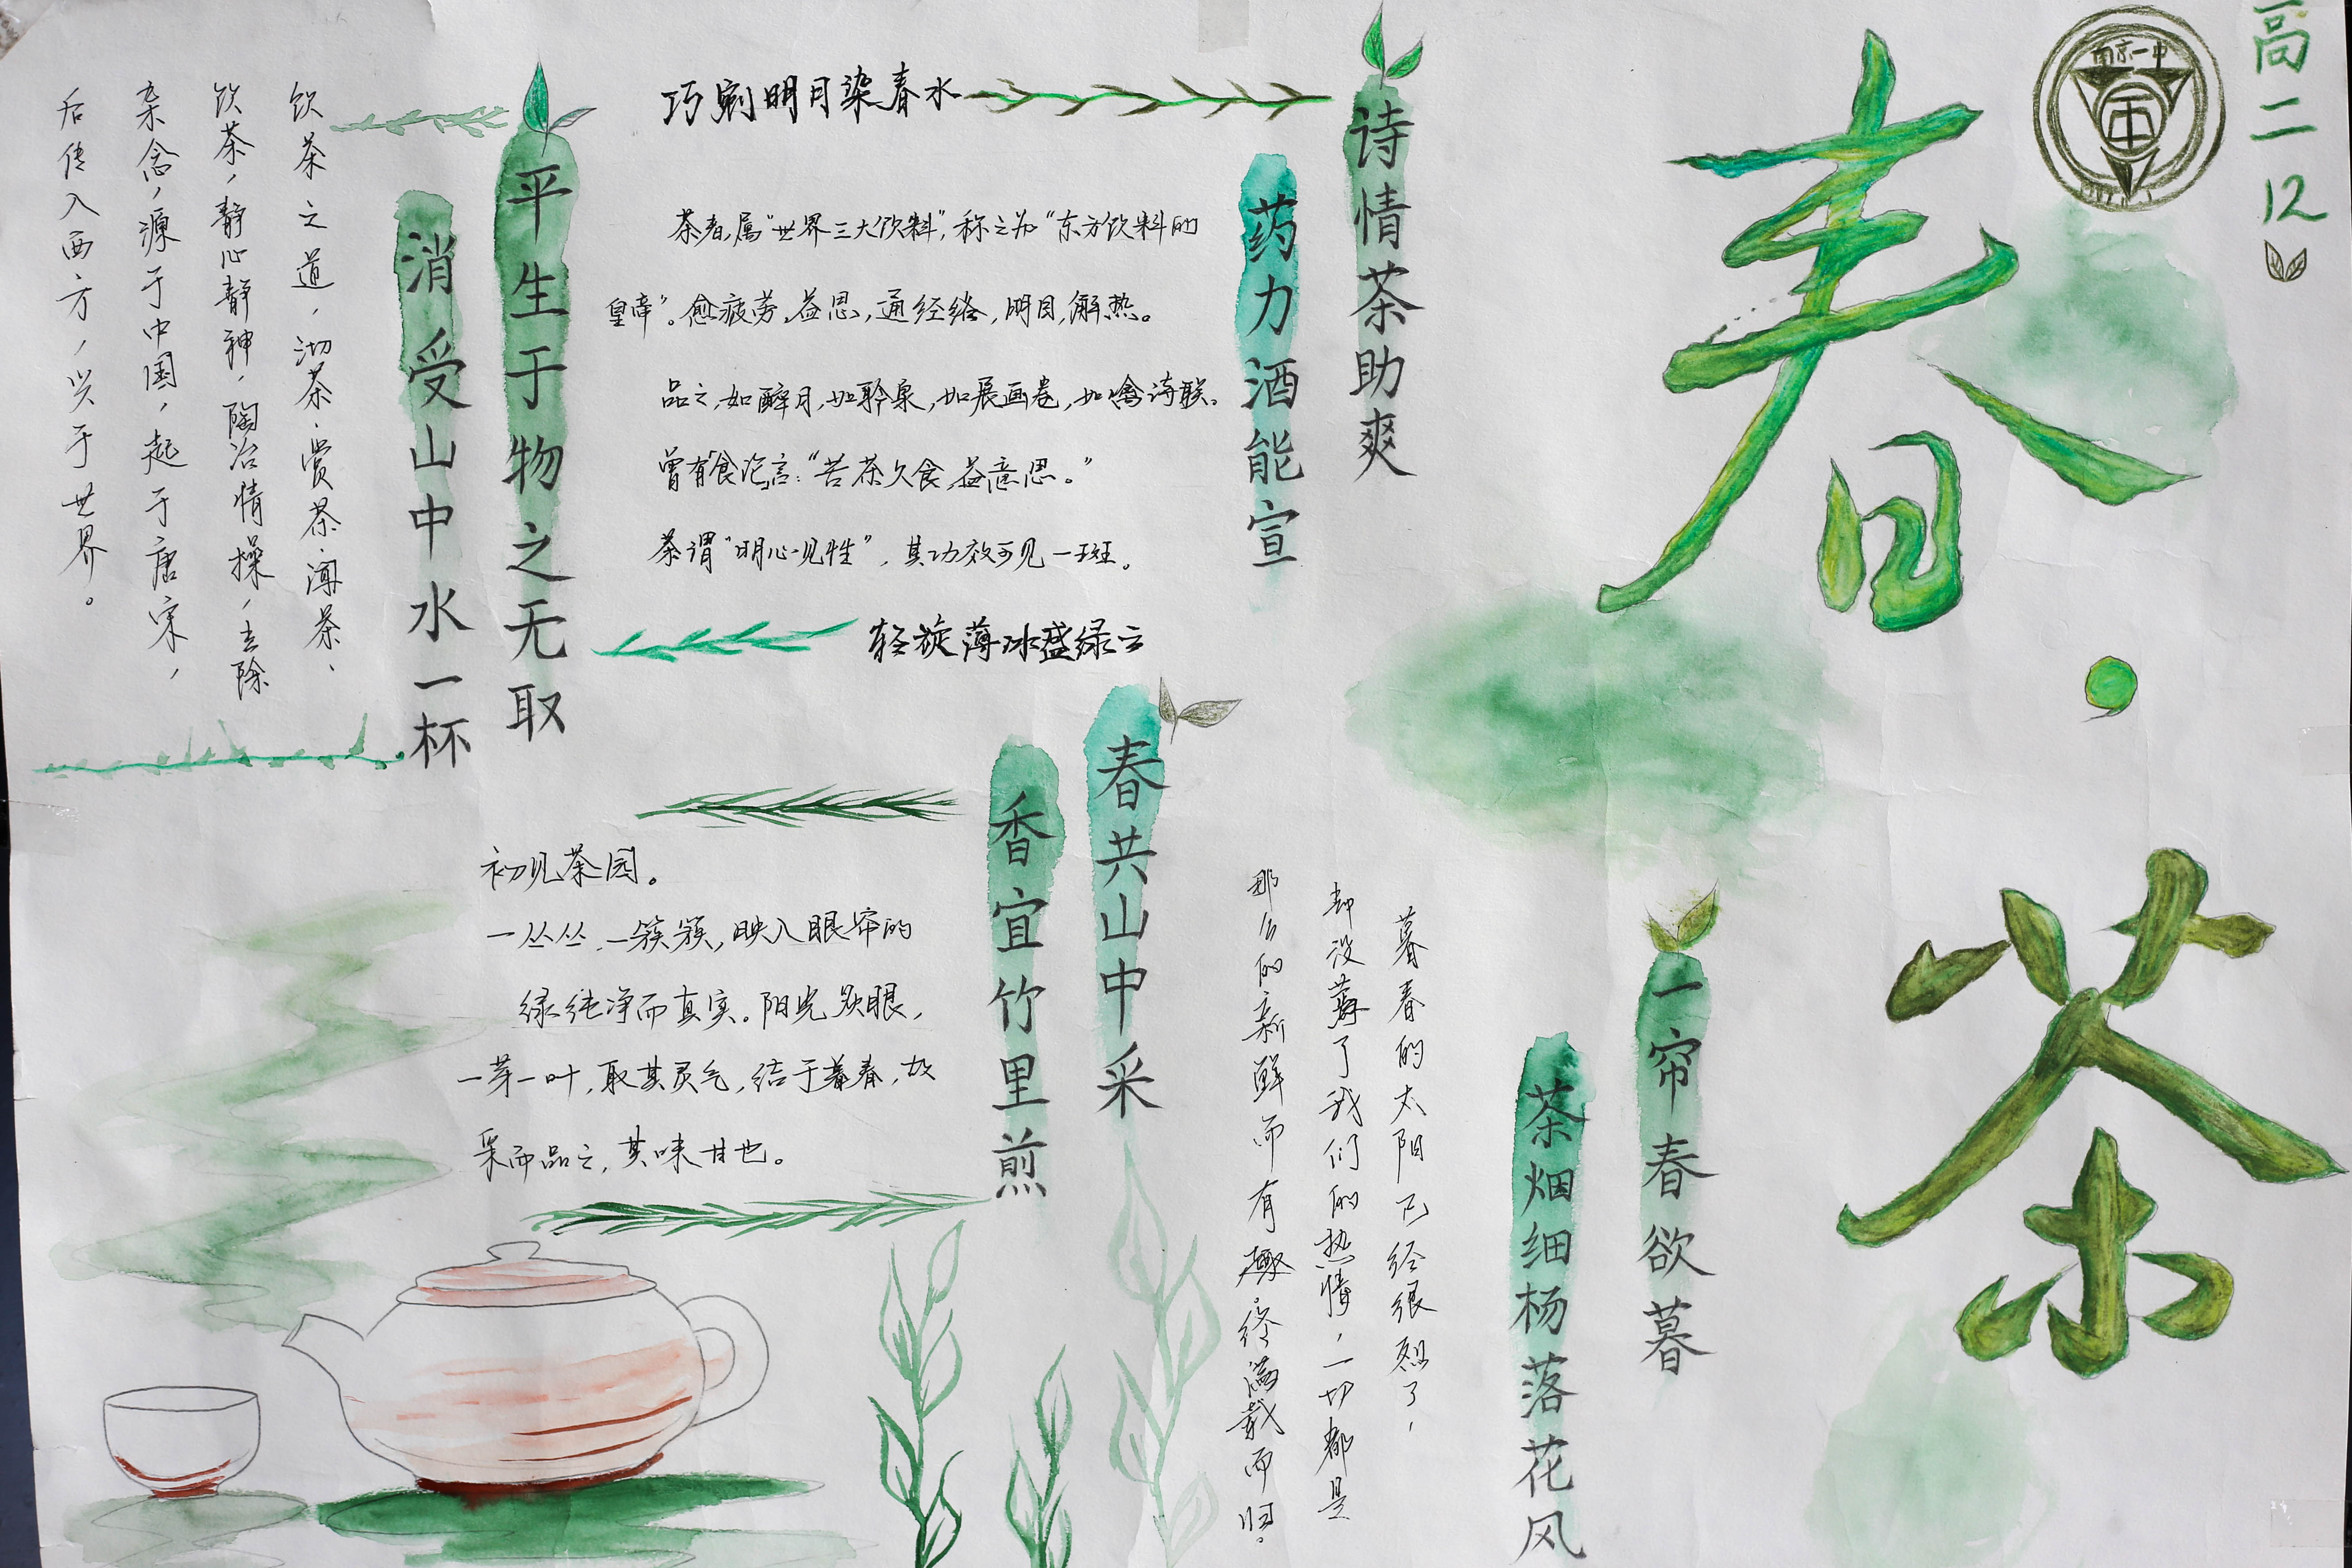 高二12
南京一中
春·茶
诗情茶助爽
药力酒能宣
巧剜明月染春水
茶者,属“世界三大饮料”,称之为“东方饮料的
皇帝”。愈疲劳,益思,通经络,明目,解热。
品之,如醉月,如聆泉,如展画卷,如噙诗联。
曾有《食论》言:“苦茶久食,益意思。”
茶谓“明心见性”,其功效可见一斑。
轻旋薄冰盛绿云
平生于物之无取
消受山中水一杯
饮茶之道,沏茶、赏茶、闻茶、
饮茶,静心静神,陶冶情操,去除
杂念,源于中国,起于唐宋,
后传入西方,兴于世界。
一帘春欲暮
茶烟细杨落花风
暮春的太阳已经很烈了,
却没薅了我们的热情,一切都是
那么的新鲜而有趣,终满载而归。
春共山中采
香宜竹里煎
初见茶园。
一丛丛,一簇簇,映入眼帘的
绿纯净而真实。阳光炽眼,
一芽一叶,取其灵气,结于暮春,故
采而品之,其味甘也。